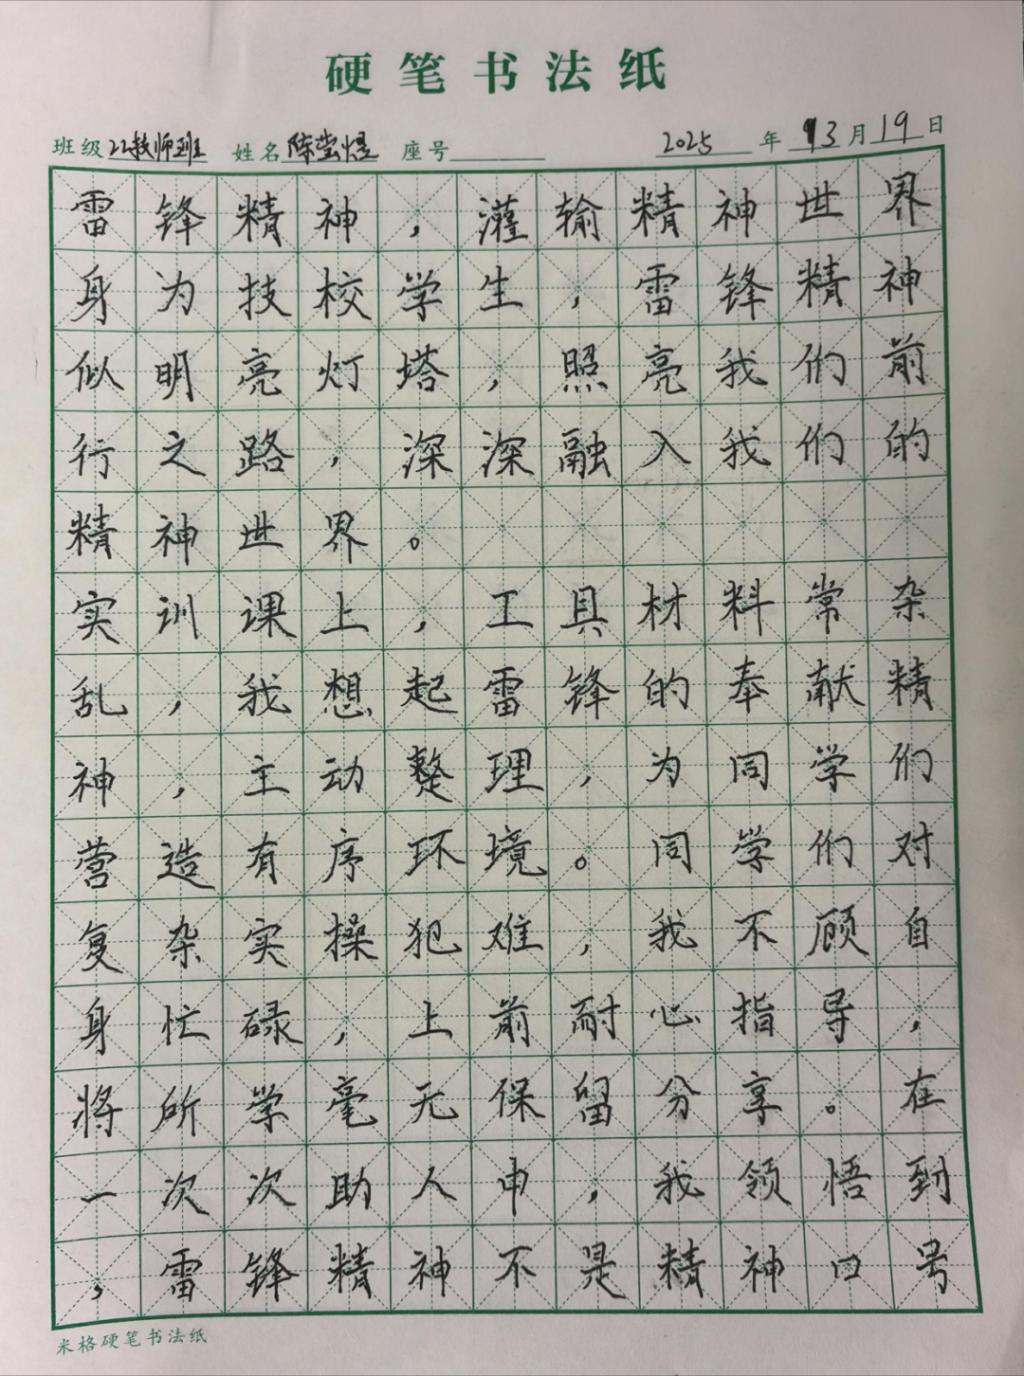 硬笔书法纸
班级 22技师班 姓名 陈莹煜 座号 2025 年 3 月 19 日
雷锋精神，灌输精神世界
身为技校学生，雷锋精神
似明亮灯塔，照亮我们前
行之路，深深融入我们的
精神世界。
实训课上，工具材料常杂
乱，我想起雷锋的奉献精
神，主动整理，为同学们
营造有序环境。同学们对
复杂实操犯难，我不顾自
身忙碌，上前耐心指导，
将所学毫无保留分享。在
一次次助人中，我领悟到
，雷锋精神不是精神口号
米格硬笔书法纸